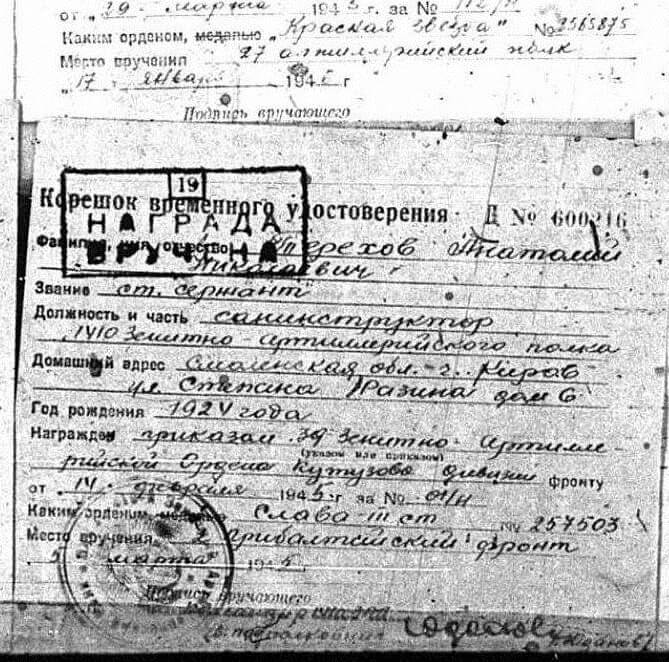 от „29" марта 194 г. за №
Каким орденом, медалью „Красная звезда" № 2565875
Место вручения 27 артиллерийский полк
„17" января 194 г
Подпись вручающего
19
НАГРАДА
ВРУЧЕНА
Корешок временного удостоверения Д № 600216
Фамилия, имя, отчество Терехов Анатолий
Николаевич
Звание ст. сержант
Должность и часть санинструктор
1410 Зенитно-артиллерийского полка
Домашний адрес Смоленская обл. г. Киров
ул. Степана Разина дом 6
Год рождения 1924 года
Награжден приказом 39 Зенитно-Артилле-
(указом или приказом)
рийской Ордена Кутузова дивизии фронту
от 14 февраля 1945 г за № 04/н
Каким орденом, медалью Слава III ст № 257503
Место вручения 2 Прибалтийский фронт
5 марта 1945
Подпись вручающего